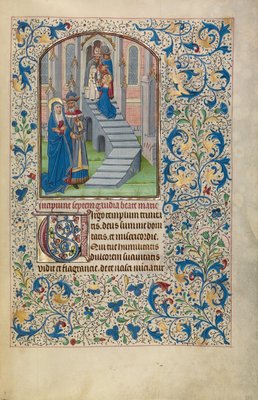 Incipiunt septem gaudia beate marie
Virgo templum trinita
tis, deus summe boni
tatis, et misericordie.
Qui tue humilitatis
dulcorem suavitatis
vidit et flagrancie. de te nasci nuntiatur